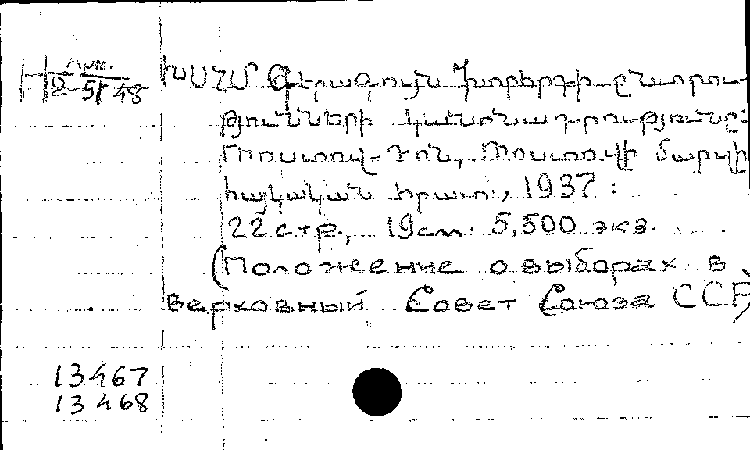 Арм.
2-51 48
ԽՍՀՄ Գերագույն Խորհրդի ընտրու-
թյունների կանոնադրությունը:
Ռոստով-Դոն, Ռոստովի մարզի
հայկական հրատ., 1937:
22 стр., 19 см. 5,500 экз.
(Положение о выборах в
Верховный Совет Союза ССР)
13467
13468